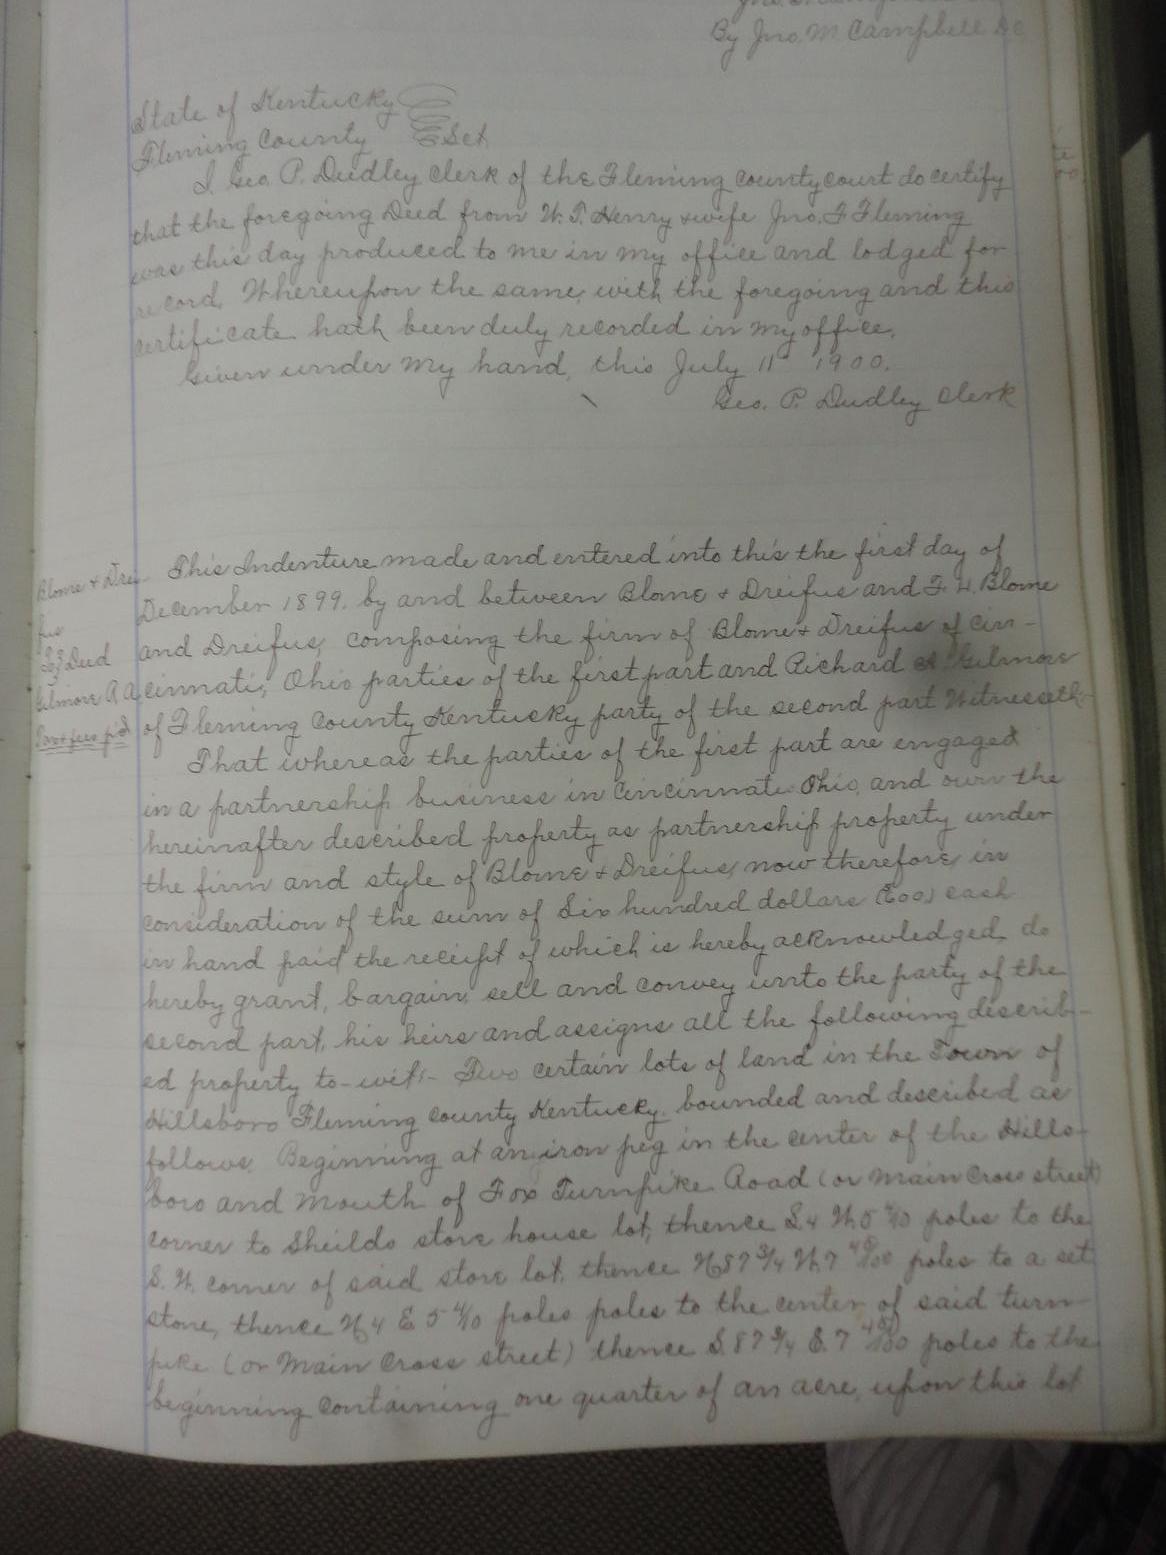 By Jno. M Campbell DC
State of Kentucky
Fleming County Sct
I Geo. P. Dudley Clerk of the Fleming county court do certify
that the foregoing Deed from W. T. Henry & wife Jno. F Fleming
was this day produced to me in my office and lodged for
record, Whereupon the same, with the foregoing and this
certificate hath been duly recorded in my office.
Given under my hand, this July 11" 1900.
Geo. P. Dudley Clerk
Blome & Drei-
fus
To } Deed
Gilmore R. A.
Tax & fees p'd
This Indenture made and entered into this the first day of
December 1899. by and between Blome & Dreifus and F. L. Blome
and Dreifus, composing the firm of Blome & Dreifus of Cin-
cinnati, Ohio parties of the first part and Richard A. Gilmore
of Fleming County Kentucky party of the second part Witnesseth-
That whereas the parties of the first part are engaged
in a partnership business in Cincinnati Ohio, and own the
hereinafter described property as partnership property under
the firm and style of Blome & Dreifus, now therefore, in
consideration of the sum of Six hundred dollars (600) cash
in hand paid the receipt of which is hereby acknowledged do
hereby grant, bargain, sell and convey unto the party of the
second part, his heirs and assigns all the following describ-
ed property to-wit:- Two certain lots of land in the Town of
Hillsboro Fleming County Kentucky. bounded and described as
follows. Beginning at an iron peg in the center of the Hills-
boro and Mouth of Fox Turnpike Road (or Main Cross street)
corner to Sheilds store house lot, thence S. 4 W. 5 4/10 poles to the
S. W. corner of said store lot, thence N 87 3/4 W. 7 48/100 poles to a set
stone, thence N 4 E 5 4/10 poles poles to the center, of said turn-
pike (or Main Cross street) thence S. 87 3/4 E. 7 48/100 poles to the
beginning containing one quarter of an acre, upon this lot